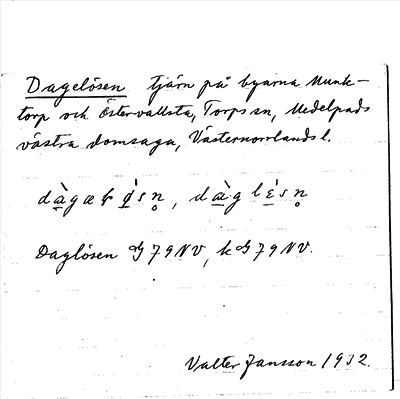 Dagelösen tjärn på byarna Munk-
torp och Östervallsta, Torps sn, Medelpads
västra domsaga, Västernorrlands l.
dàgæƚ ǿsn̥, dàg lɛ́sn̥
Daglösen G 79 NV, kG 79 NV.
Valter Jansson 1932.